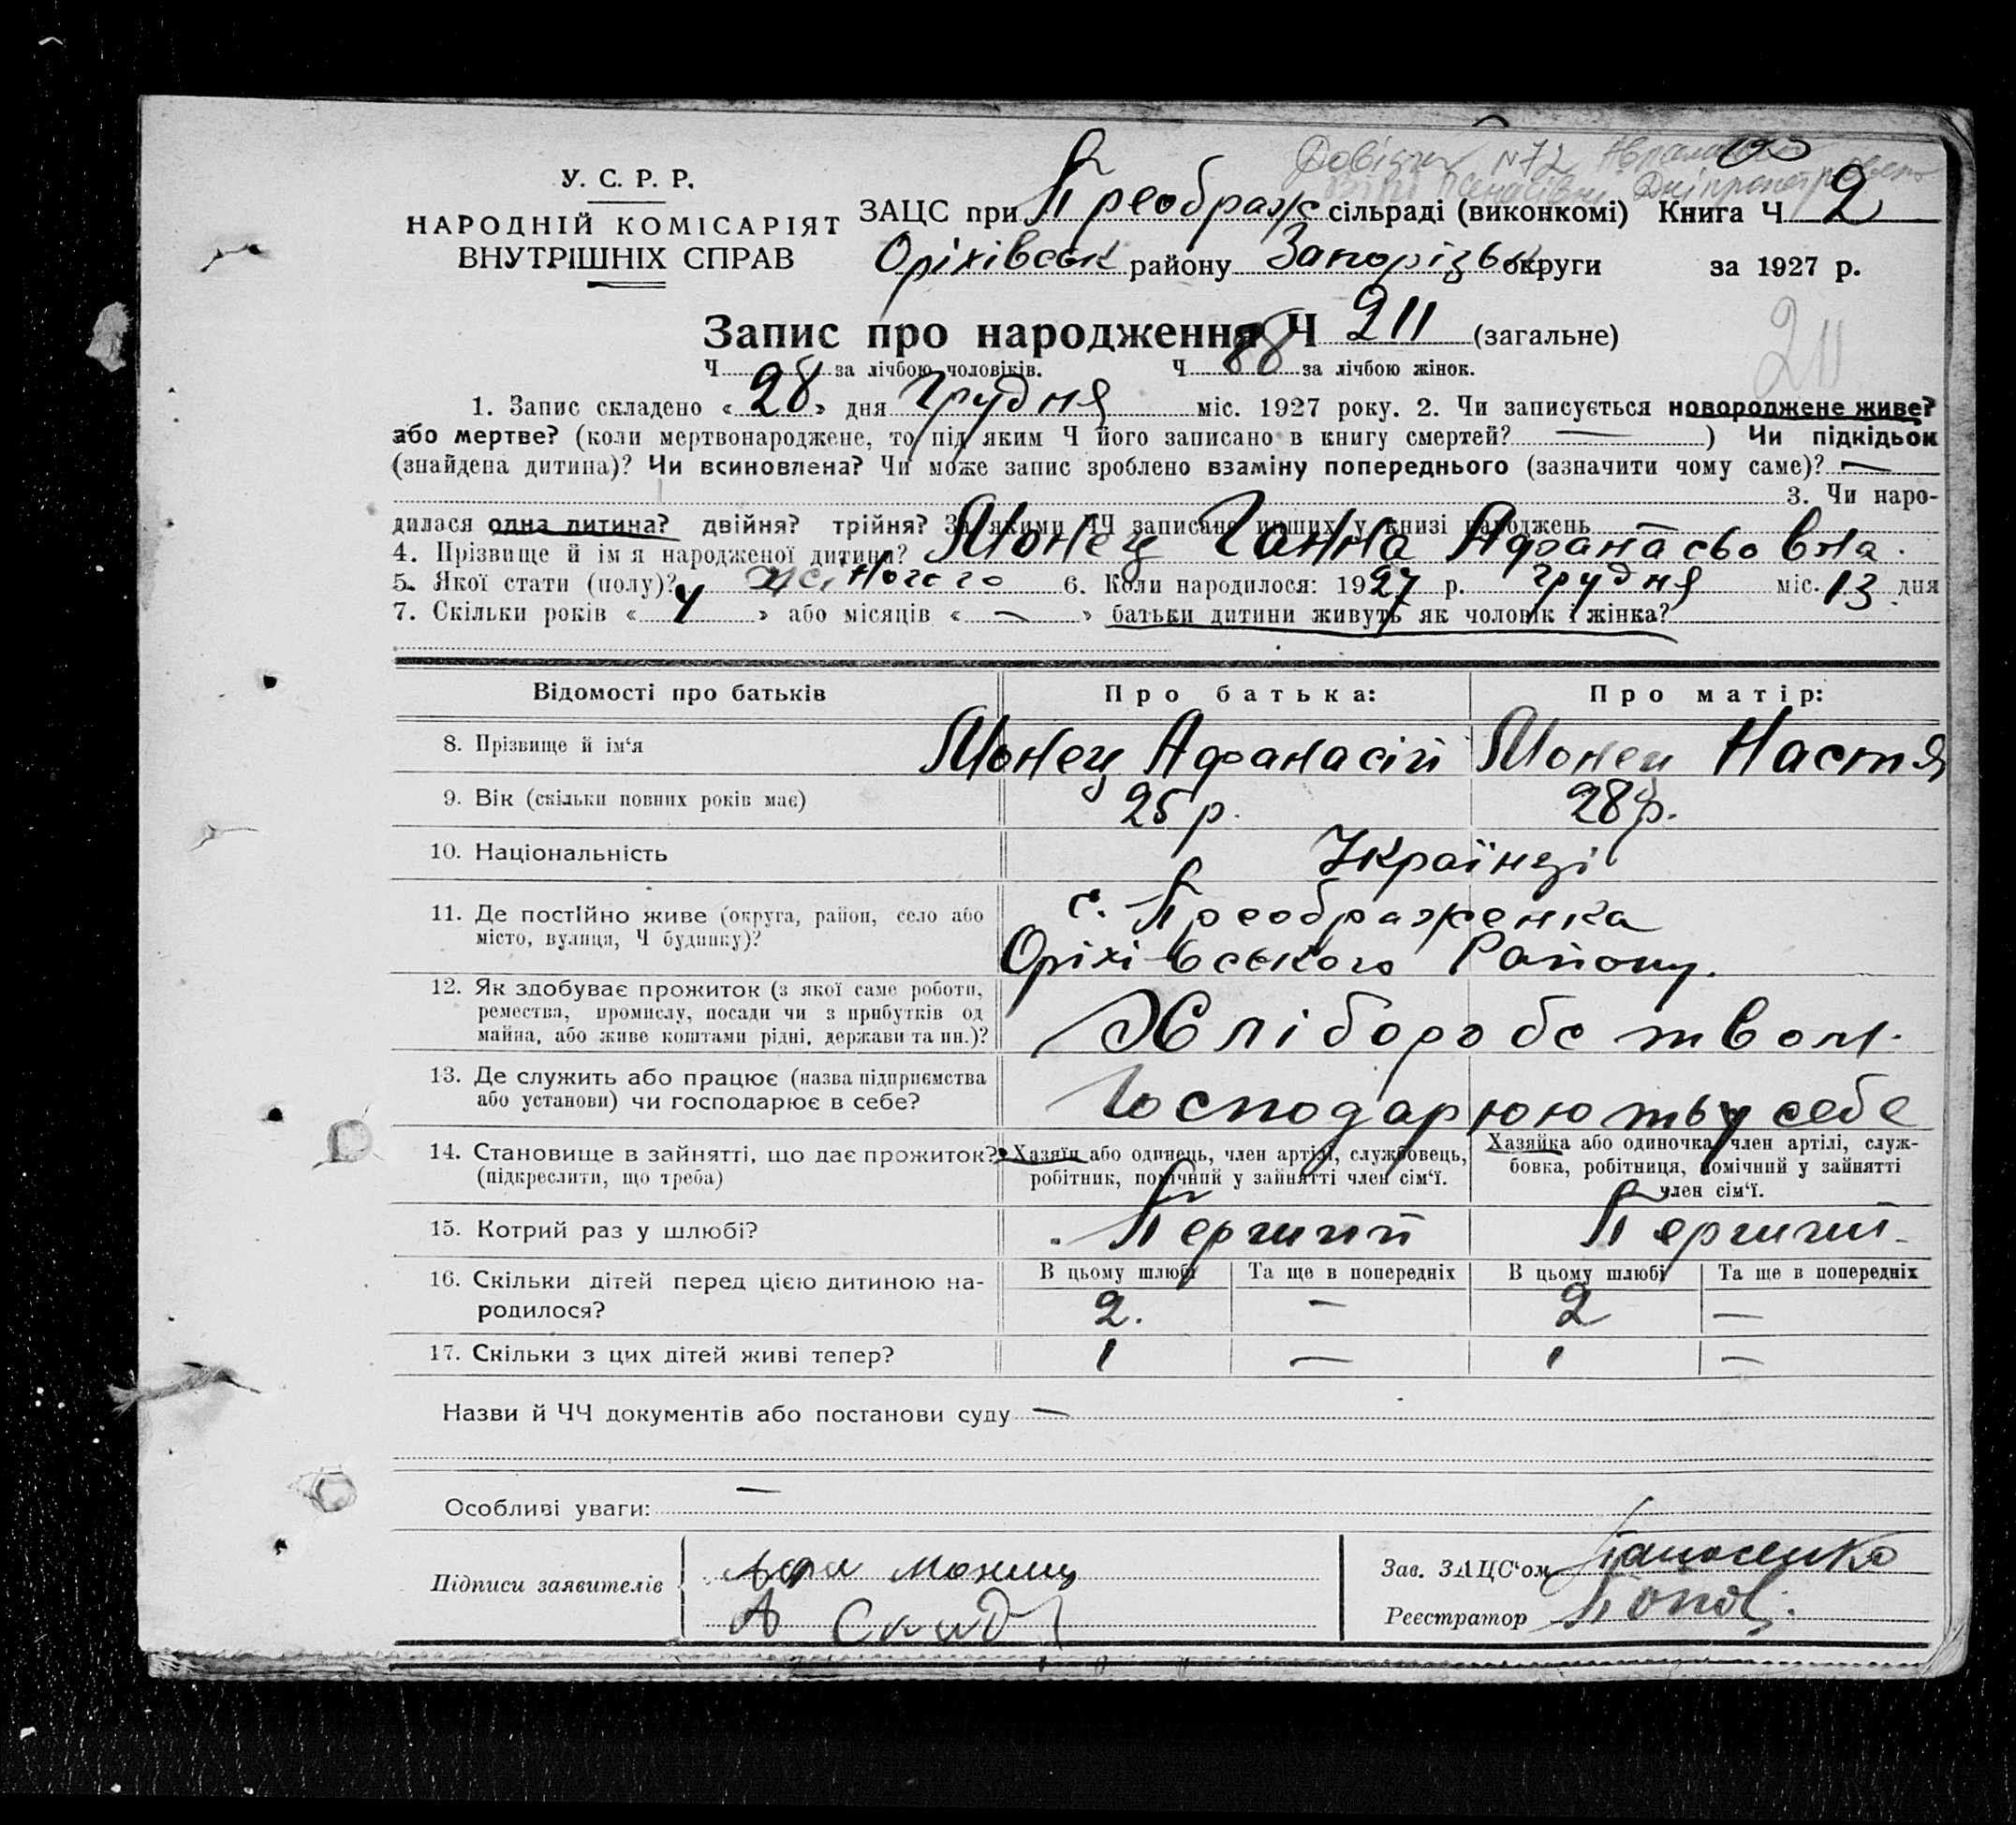 Довідка N72
193
У. С. Р. Р.
НАРОДНІЙ КОМІСАРІЯТ
ВНУТРІШНІХ СПРАВ
ЗАЦС при Преображ сільраді (виконкомі) Книга Ч 2
Оріхівськ району Запорізьк округи за 1927 р.
Запис про народження Ч 211 (загальне)
211
Ч за лічбою чоловіків. Ч 88 за лічбою жінок.
1. Запис складено « 28 » дня Грудня міс. 1927 року. 2. Чи записується новороджене живе?
або мертве? (коли мертвонароджене, то під яким Ч його записано в книгу смертей? — ) Чи підкідьок
(знайдена дитина)? Чи всиновлена? Чи може запис зроблено взаміну попереднього (зазначити чому саме)? —
3. Чи наро-
дилася одна дитина? двійня? трійня? За якими ЧЧ записано инших у книзі народжень
4. Прізвище й ім я народженої дитини? Монец Ганна Афанасьовна.
5. Якої стати (полу)? жіночого 6. Коли народилося: 1927 р. грудня міс. 13 дня
7. Скільки років « 4 » або місяців « — » батьки дитини живуть як чоловік і жінка?
Відомості про батьків Про батька: Про матір:
8. Прізвище й ім‘я Монец Афанасій Монец Настя
9. Вік (скільки повних років має) 25 р. 28 р.
10. Національність Українці
11. Де постійно живе (округа, район, село або
місто, вулиця, Ч будинку)?
с. Преображенка
Оріхівського Району.
12. Як здобуває прожиток (з якої саме роботи,
ремества, промислу, посади чи з прибутків од
майна, або живе коштами рідні, держави та ин.)?
Хліборобством.
13. Де служить або працює (назва підприємства
або установи) чи господарює в себе?
Господарюють у себе
14. Становище в зайнятті, що дає прожиток?
(підкреслити, що треба)
Хазяїн або одинець, член артілі, службовець,
робітник, помічний у зайнятті член сім‘ї.
Хазяйка або одиночка, член артілі, служ-
бовка, робітниця, помічний у зайнятті
член сім‘ї.
15. Котрий раз у шлюбі? Перший Перший
16. Скільки дітей перед цією дитиною на-
родилося?
В цьому шлюбі Та ще в попередніх В цьому шлюбі Та ще в попередніх
2. — 2 —
17. Скільки з цих дітей живі тепер? 1 — 1 —
Назви й ЧЧ документів або постанови суду —
Особливі уваги: —
Підписи заявителів
Зав. ЗАЦС‘ом
Реєстратор Попов.